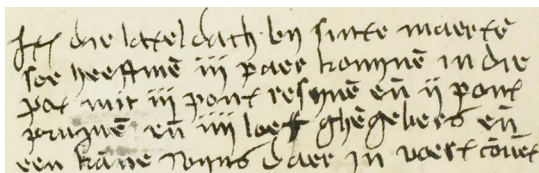 Itē die latel dach by sinte maertē
soe heeftmē iij paer konynē in die
pot mit iij pont resynē en̄ ij pont
prumē en̄ iiij loet ghēgebers en̄
een kāne wyns daer in voert cōuēt